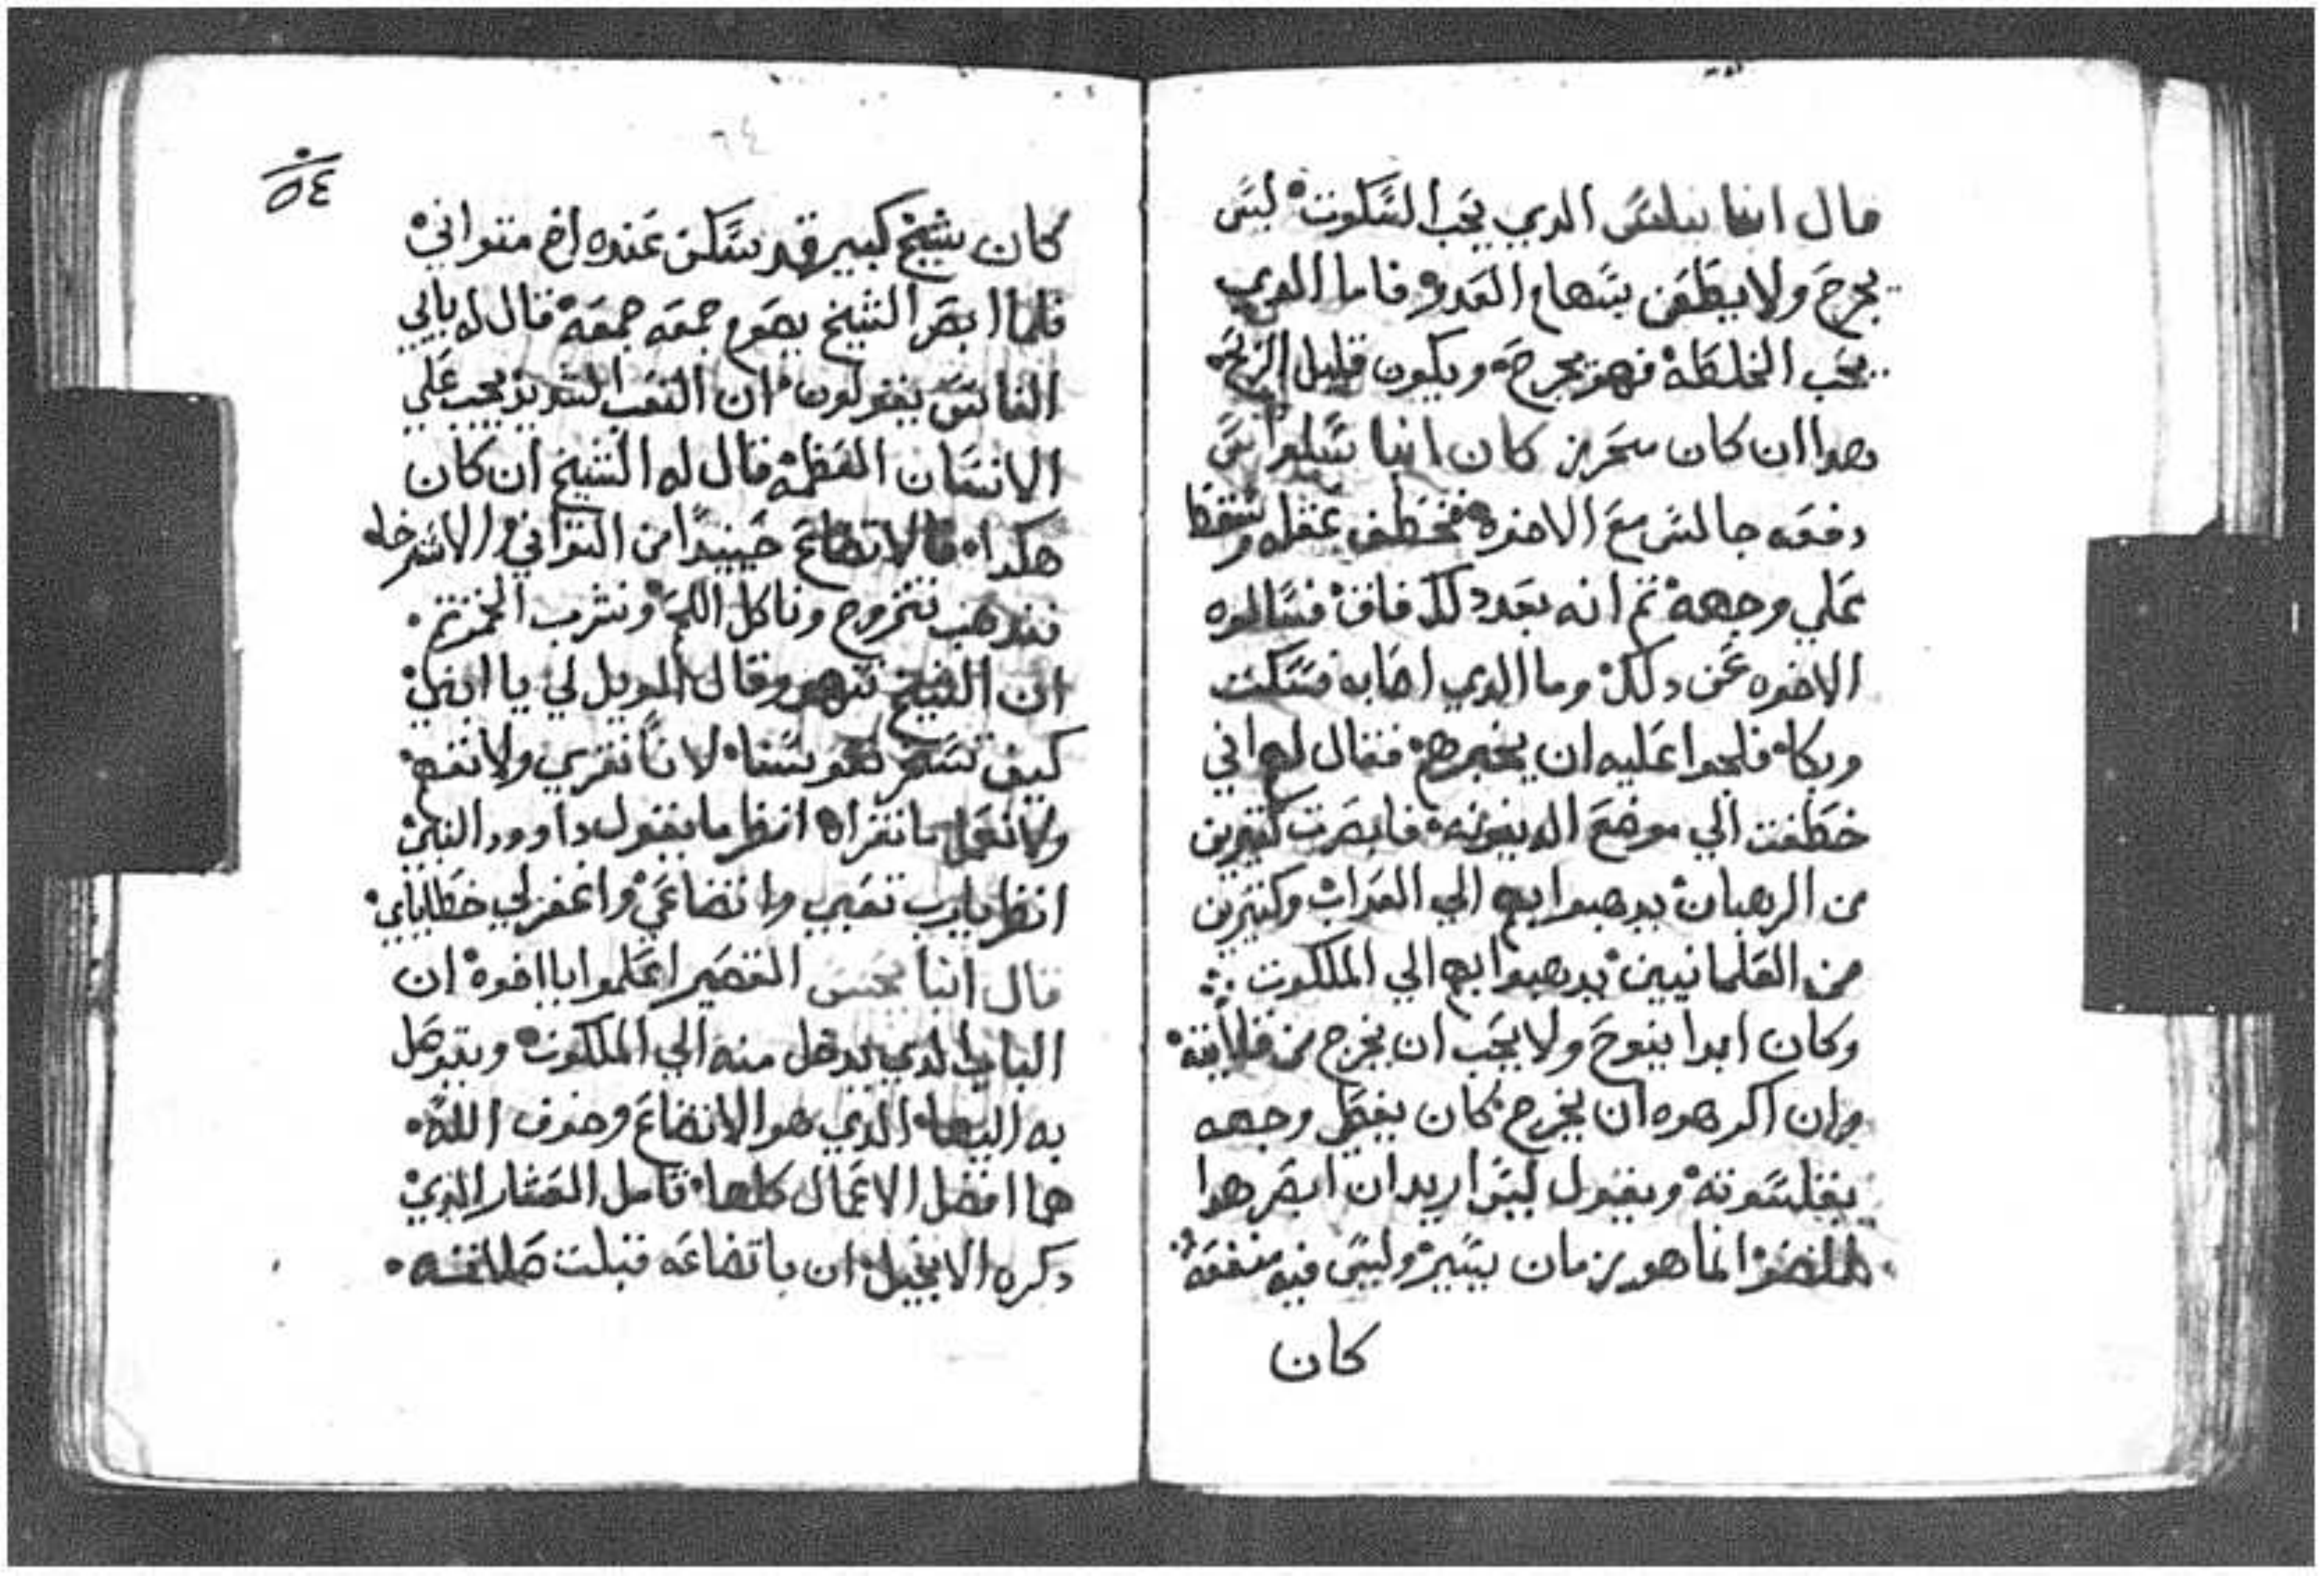 قال انبا نيلس الدي يحب السكوت ليس
يجرح ولا يطعن بسهام العدو فاما الدي
يحب الخلطه فهو يجرح ويكون قليل الربح
هدا ان كان متحرز كان انبا سلوانس
دفعه جالس مع الاخوه فخطف عقله وسقط
علي وجهه تم انه بعد دلك فاق فسالوه
الاخوه عن دلك وما الدي اصابه فسكت
وبكا فلجوا عليه ان يخبرهم فقال لهم اني
خطفت الي موضع الدينونه فابصرت كتيرين
من الرهبان يدهبوا بهم الي العداب وكتيرين
من العلمانيين يدهبوا بهم الي الملكوت
وكان ابدا ينوح ولا يحب ان يخرج من قلايته
وان اكرهوه ان يخرج كان يغطي وجهه
بقلسوته ويقول ليس اريد ان ابصر هدا
الضو انما هو زمان يسير وليس فيه منفعه
كان
٥٤
كان شيخ كبير قد سكن عنده اخ متواني
فلما ابصر الشيخ يصوم جمعه جمعه قال له يا ابي
الناس يقولون ان التعب الشديد يجيب علي
الانسان العظمه قال له الشيخ ان كان
هكدا فالاتضاع حينيدا من التواني والاسترخا
فندهب نتزوج وناكل اللحم ونشرب الخمر تم
ان الشيخ تنهد وقال الويل لي يا ابني
كيف نسخر نفوسنا لاننا نقري ولا نفهم
ولا نعمل ما نقراه انظر ما يقول داوود النبي
انظر يا رب تعبي واتضاعي واغفر لي خطاياي
قال انبا يحنس القصير اعلموا يا اخوه ان
الباب الدي يدخل منه الي الملكوت ويتوصل
به اليها الدي هو الاتضاع وخوف الله
هما افضل الاعمال كلها تامل العشار الدي
دكره الانجيل ان باتضاعه قبلت صلاته